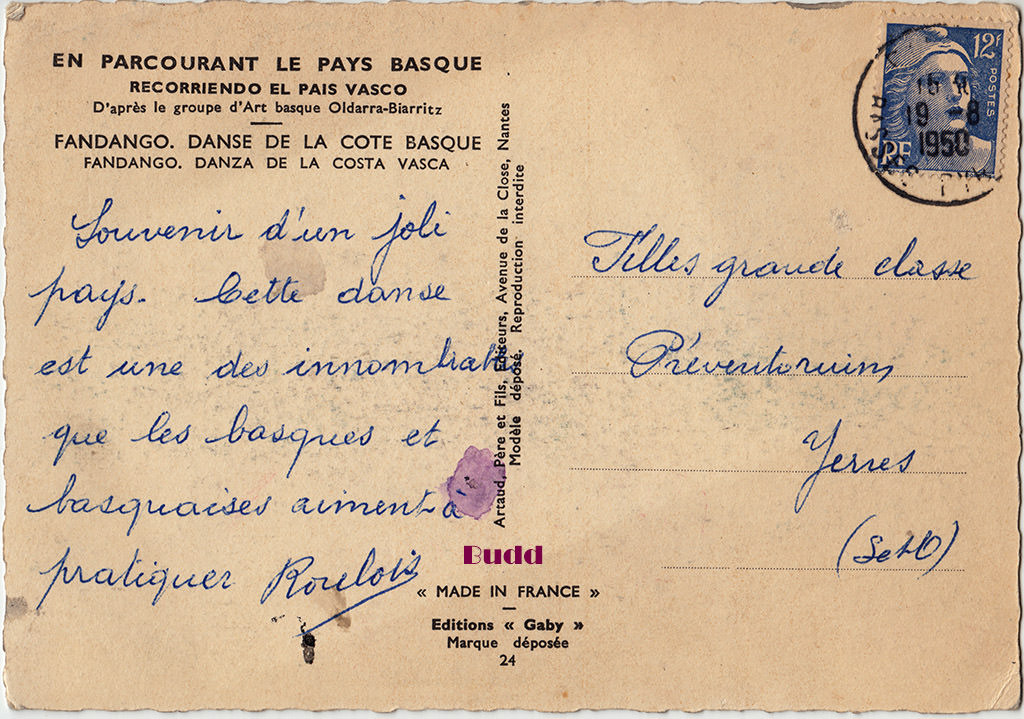 EN PARCOURANT LE PAYS BASQUE
RECORRIENDO EL PAIS VASCO
D'après le groupe d'Art basque Oldarra-Biarritz
FANDANGO. DANSE DE LA COTE BASQUE
FANDANGO. DANZA DE LA COSTA VASCA
Souvenir d'un joli
pays. Cette danse
est une des innombrables
que les basques et
basquaises aiment à
pratiquer Roulois
Artaud, Père et Fils, Editeurs, Avenue de la Close, Nantes
Modèle déposé. Reproduction interdite
Budd
« MADE IN FRANCE »
Editions « Gaby »
Marque déposée
24
12F
POSTES
RF
19 -8
1950
Filles grande classe
Préventorium
Yerres
(S et O)